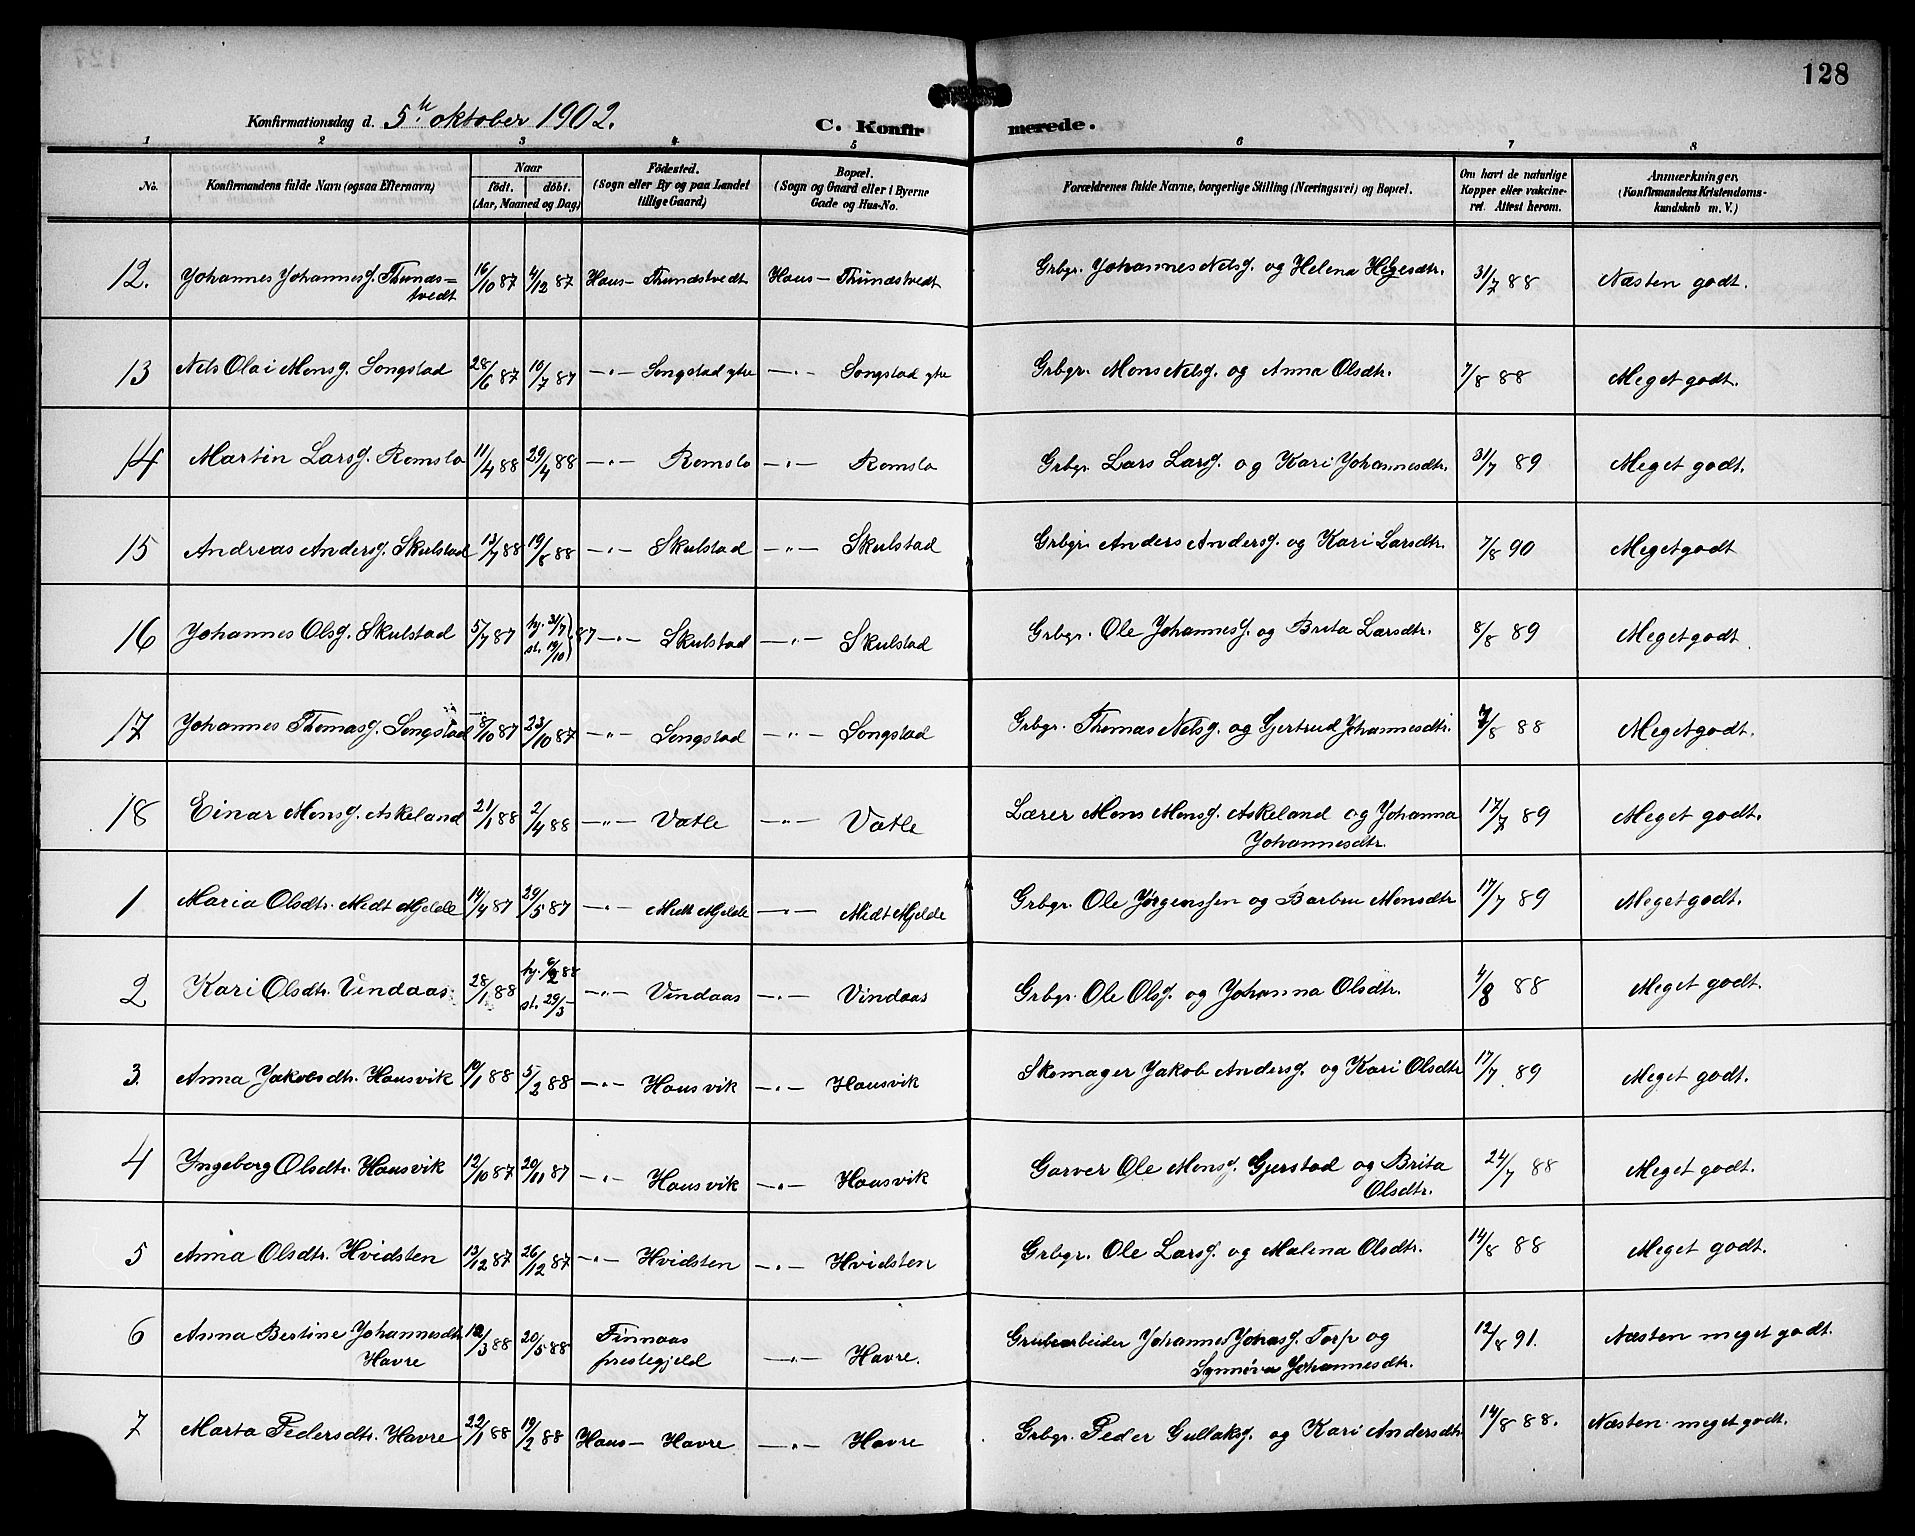 128
Konfirmationsdag d. 5te oktober 1902. C. Konfirmerede.
1 2 3 4 5 6 7 8
No. Konfirmandens fulde Navn (ogsaa Efternavn) Naar født. døbt. (Aar, Maaned og Dag) Fødested. (Sogn eller By og paa Landet tillige Gaard) Bopæl. (Sogn og Gaard eller i Byerne Gade og Hus-No. Forældrenes fulde Navne, borgerlige Stilling (Næringsvei) og Bopæl. Om havt de naturlige Kopper eller vakcineret. Attest herom. Anmærkninger, (Konfirmandens Kristendomskundskab m. V.)
12. Johannes Johannesg. Thunds= 16/10 87 4/12 87 Haus – Thundstvedt Haus – Thundstvedt Grbgr. Johannes Nelsg. og Helena Helgesdtr. 31/7 88 Næsten godt.
tvedt
13 Nels Olai Monsg. Songstad 28/6 87 10/7 87 –"– Songstad ytre –"– Songstad ytre Grbgr. Mons Nelsg. og Anna Olsdtr. 7/8 88 Meget godt.
14 Martin Larsg. Romslo 11/4 88 29/4 88 –"– Romslo –"– Romslo Grbgr. Lars Larsg. og Kari Johannesdtr. 31/7 89 Meget godt.
15 Andreas Andersg. Skulstad 13/7 88 19/8 88 –"– Skulstad –"– Skulstad Grbgr. Anders Andersg. og Kari Larsdtr. 7/8 90 Meget godt
16 Johannes Olsg. Skulstad 5/7 87 hj. 31/7 st. 19/10 } 87 –"– Skulstad –"– Skulstad Grbgr. Ole Johannesg. og Brita Larsdtr. 8/8 89 Meget godt
17 Johannes Thomasg. Songstad 8/10 87 23/10 87 –"– Songstad –"– Songstad Grbgr. Thomas Nelsg. og Gjertrud Johannesdtr. 7/8 88 Meget godt.
18 Einar Monsg. Askeland 21/1 88 2/4 88 –"– Vatle –"– Vatle Lærer Mons Monsg. Askeland og Johanna 17/7 89 Meget godt.
Johannesdtr.
1 Maria Olsdtr. Midt Mjelde 14/4 87 29/5 87 –"– Midt Mjelde –"– Midt Mjelde Grbgr. Ole Jørgenssen og Barbru Monsdtr 17/7 89 Meget godt.
2 Kari Olsdtr. Vindaas 28/1 88 hj. 6/2 88 st. 29/3 – –"– Vindaas –"– Vindaas Grbgr. Ole Olsg. og Johanna Olsdtr. 4/8 88 Meget godt.
3. Anna Jakobsdtr. Hausvik 19/1 88 5/2 88 –"– Hausvik –"– Hausvik Skomager Jakob Andersg. og Kari Olsdtr 17/7 89 Meget godt.
4 Ingeborg Olsdtr. Hausvik 12/10 87 20/11 87 –"– Hausvik –"– Hausvik Garver Ole Monsg. Gjerstad og Brita 24/7 88 Meget godt.
Olsdtr.
5 Anna Olsdtr. Hvidsten 13/12 87 26/12 87 –"– Hvidsten –"– Hvidsten Grbgr. Ole Larsg. og Malena Olsdtr. 14/8 88 Meget godt.
6 Anna Bertine Johannesdtr. /3 88 20/5 88 Finnaas –"– Havre. Grubearbeider Johannes Johasg. Torp og 12/8 91. Næsten meget godt.
Havre prestegjeld Synnøva Johannesdtr.
7 Marta Pedersdtr. Havre 22/1 88 19/2 88 Haus – Havre –"– Havre Grbgr. Peder Gullaksg. og Kari Andersdtr 14/8 88. Næsten meget godt.